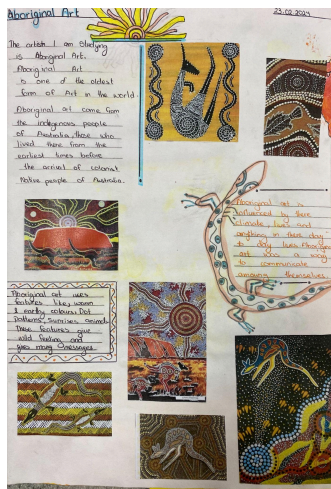 Aboriginal Art
23-02-2024
The artist I am Studying
is Aboriginal Art.
Aboriginal Art
is one of the oldest
form of Art in the world.
Aboriginal art come from
the indegenous people
of Australia, those who
lived there from the
earliest times before
the arrival of colonist
Native people of Australia.
Aboriginal art is
influenced by there
climate, lives and
anything in their day
to day lives. Aboriginal
art was a way
to communicate
among themselves.
Aboriginal art uses
features like, warm
& earthy colours. Dot
Patterns, Sunrises, animals
These features give
wild feeling and
give many messages.